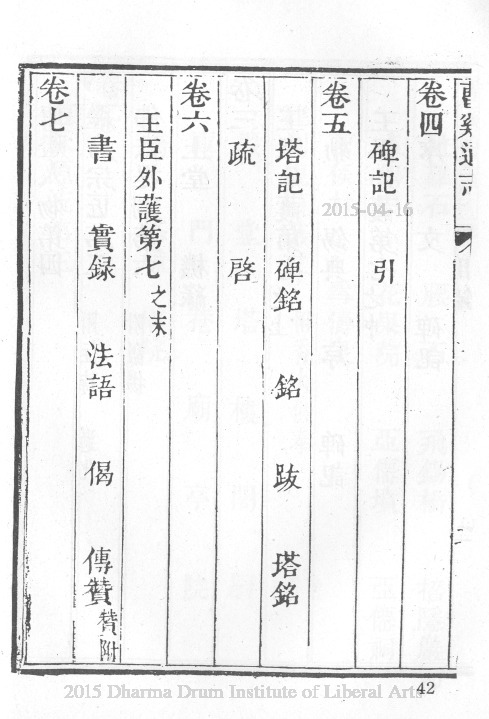 曹溪通志
卷四
碑記 引
卷五
塔記 碑銘 銘 跋 塔銘
疏 啓
卷六
王臣外護第七之末
書 實録 法語 偈 傳贊贊附
卷七
2015-04-16
42
2015 Dharma Drum Institute of Liberal Arts